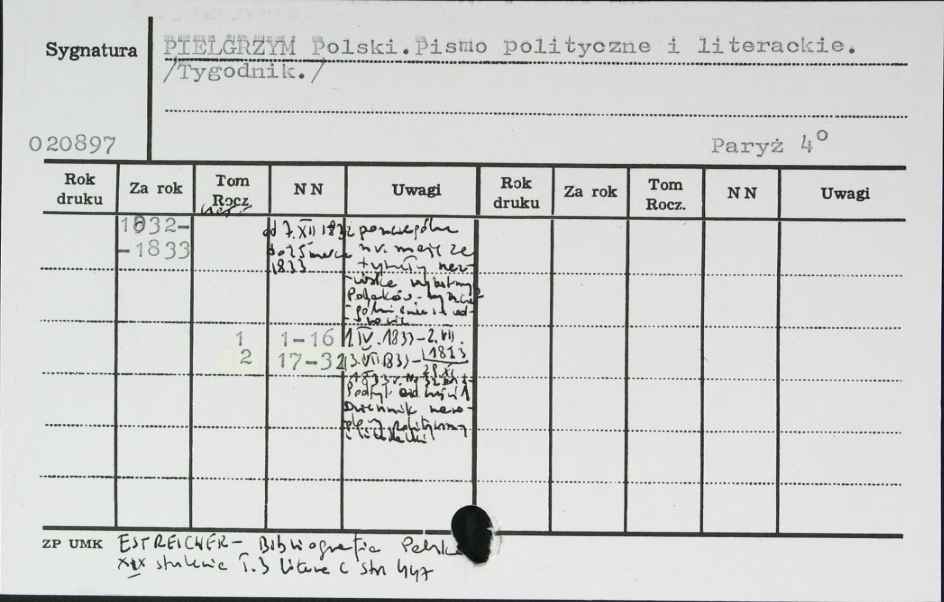 Sygnatura
PIELGRZYM Polski.Pismo polityczne i literackie.
/Tygodnik./
020897
Paryż 4°
Rok druku Za rok Tom Rocz. NN Uwagi Rok druku Za rok Tom Rocz. NN Uwagi
1832- od 7.XII 1832 poszczególne
-1833 do 25 marca nr. mają ze
1833 tytuły
Polaków
1 1-16 1 IV.1833-2.VII.
2 17-32 3.VII 1833- 1833
Dziennik
polityczny
i literacki
ZP UMK ESTREICHER- Bibliografia Polska
XIX stulecia T.3 litera C str 447